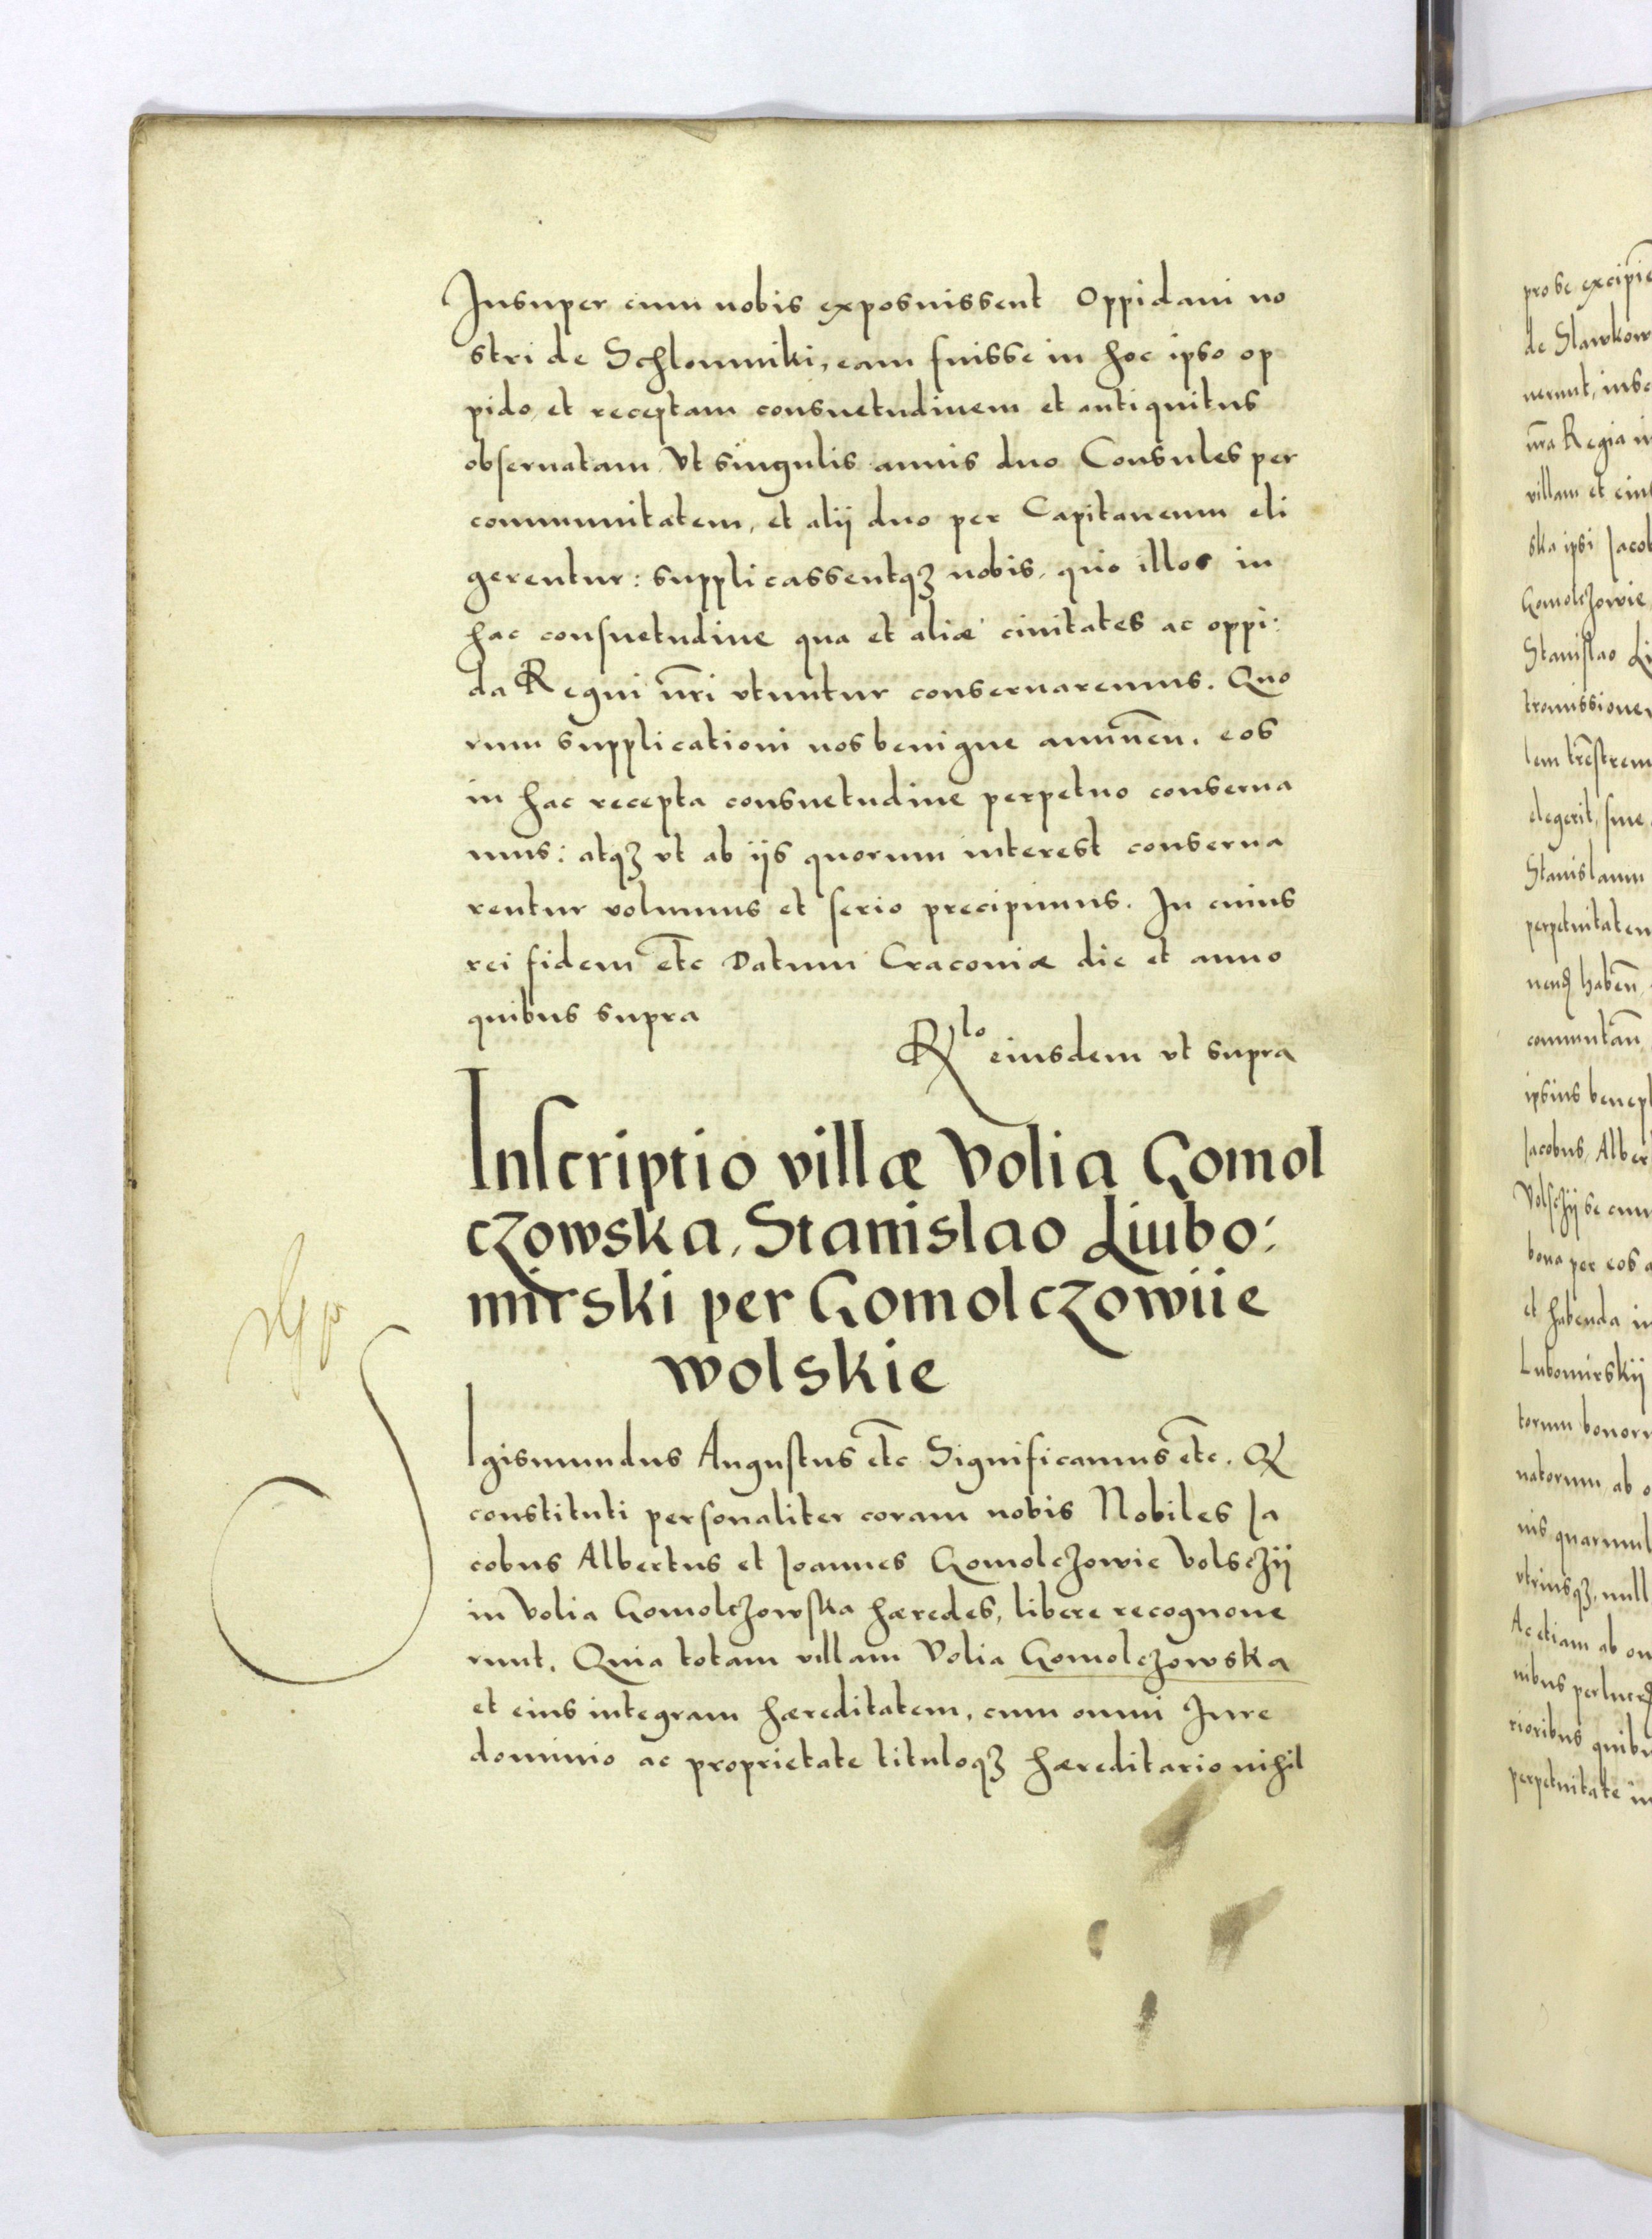 Insuper cum nobis exposuissent Oppidani no
stri de Schlomniki, eam fuisse in hoc ipso op
pido, et receptam consuetudinem et antiquitus
obseruatam, Vt singulis annis duo Consules per
communitatem, et alij duo per Capitaneum eli
gerentur: supplicassentqꝫ nobis, quo illos in
hac consuetudine qua et aliæ ciuitates ac oppi:
da Regni nr̃i vtuntur conseruaremus. Quo
rum supplicationi nos benigne annueñ. eos
in hac recepta consuetudine perpetuo conserua
mus: atqꝫ vt ab ijs quorum interest conserua
rentur volumus et serio precipimus. In cuius
rei fidem etc̃ Datum Cracouiæ die et anno
quibus supra
Rlo eiusdem vt supra
Inscriptio villæ Volia Gomol
czowska, Stanislao Liubo:
mirski per Gomolczowiie
wolskie
Igismundus Augustus etc̃ Significamus etc̃. Q
constituti personaliter coram nobis Nobiles Ia
cobus Albertus et Ioannes Gomolczowie Volsczij
in Volia Gomolczowska hæredes, libere recognoue
runt. Quia totam villam Volia Gomolczowska
et eius integram hæreditatem, cum omni Iure
dominio ac proprietate tituloqꝫ hæreditario nihil
pro se
de Slawkow
nerunt,
nr̃a Regia
villam et
ska ipsi Iacob
Gomolczowie
Stanislao
elegerit, siue
Stanislaum
ipsius
Iacobus, Alber
Volsczij se cum
bona per eos
et habenda
Lubomirskij
torum
natorum ab
nis
vtriusqꝫ, null
Ac etiam ab
nibus
rioribus
perpetuitate